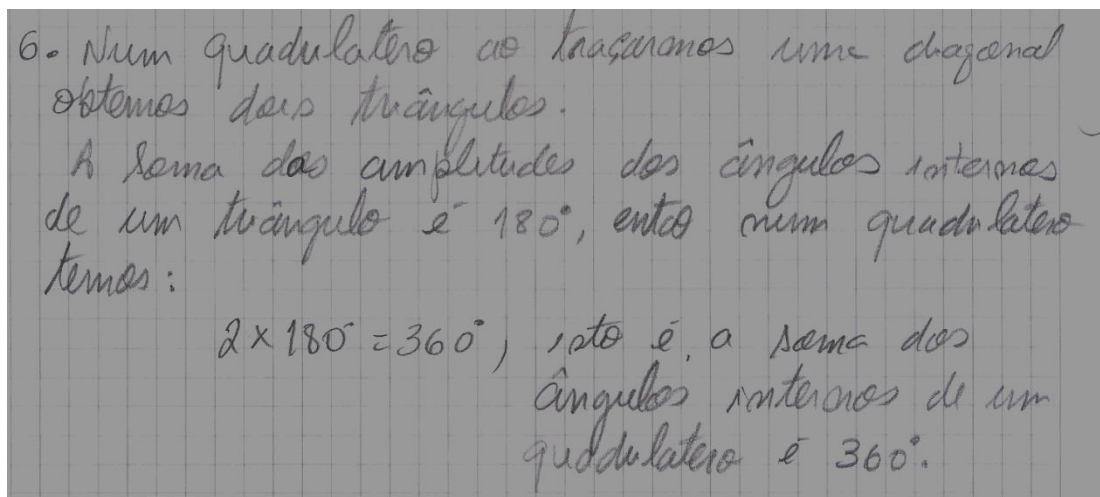 6. Num quadrilatero ao traçarmos uma diagonal
obtemos dois triângulos.
A soma das amplitudes dos ângulos internos
de um triângulo é 180°, entao num quadrilatero
temos:
2 × 180° = 360°, isto é, a soma dos
ângulos internos de um
quadrilatero é 360°.